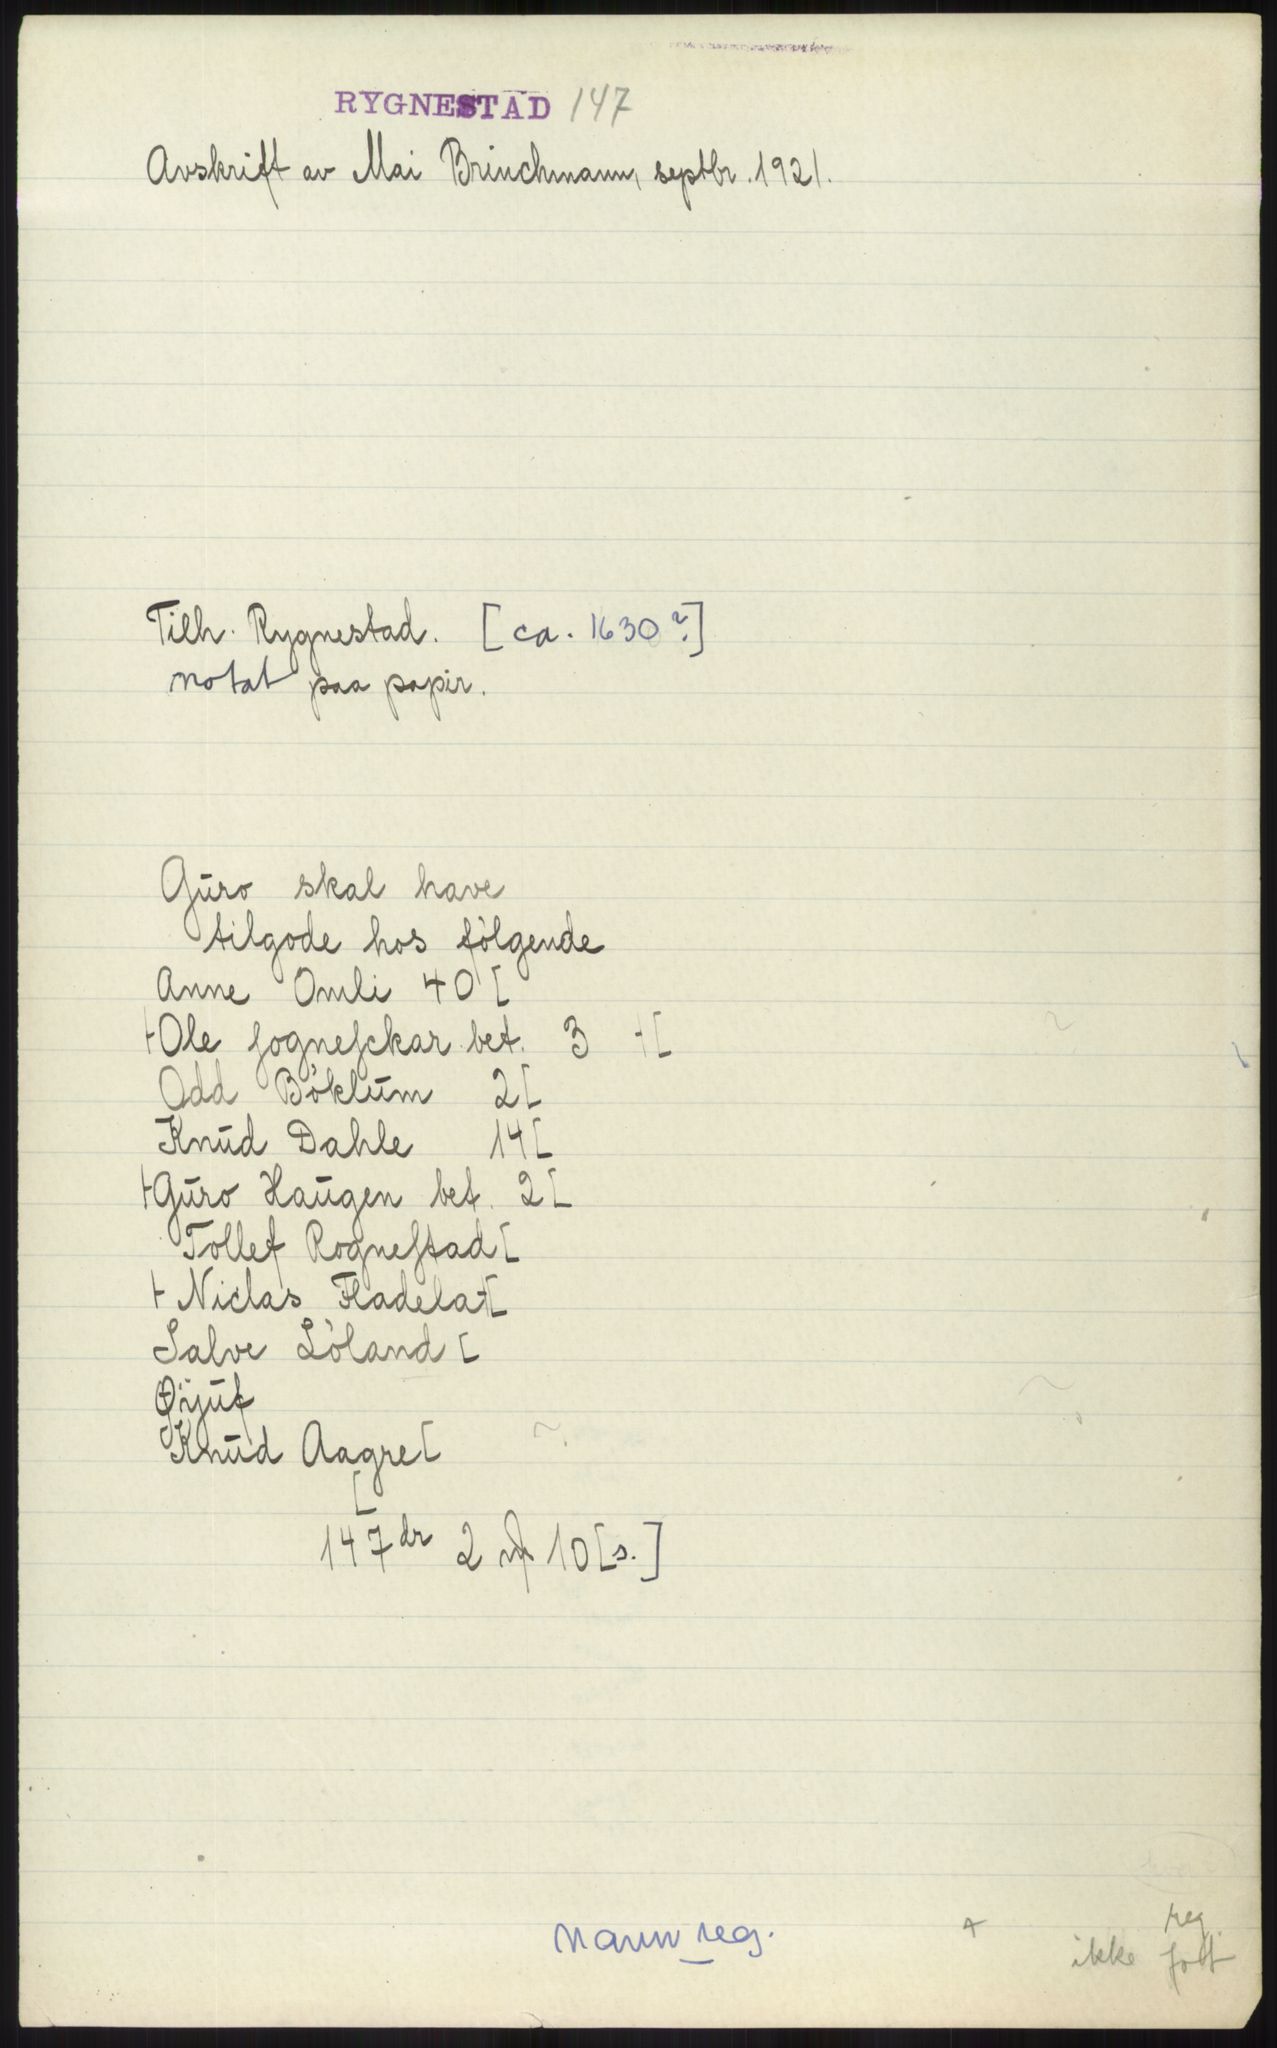 RYGNESTAD 147
Avskrift av Mai Brinchmann, septbr. 1921.
Tilh. Rygnestad. [ca. 1630?]
notat paa papir.
Gūro skal have
tilgode hos følgende
Anne Omli 40 [
+Ole ſogneſckar bet. 3 +[
Odd Bøklūm 2[
Knūd Dahle 14[
+Gūro Haūgen bet. 2[
Tollef Rogneſtad[
+ Niclas Fladela+[
Salve Løland [
Øÿūf
Knūd Aagre[
[
147 dr 2 10[s.]
navn reg.
reg.
ikke